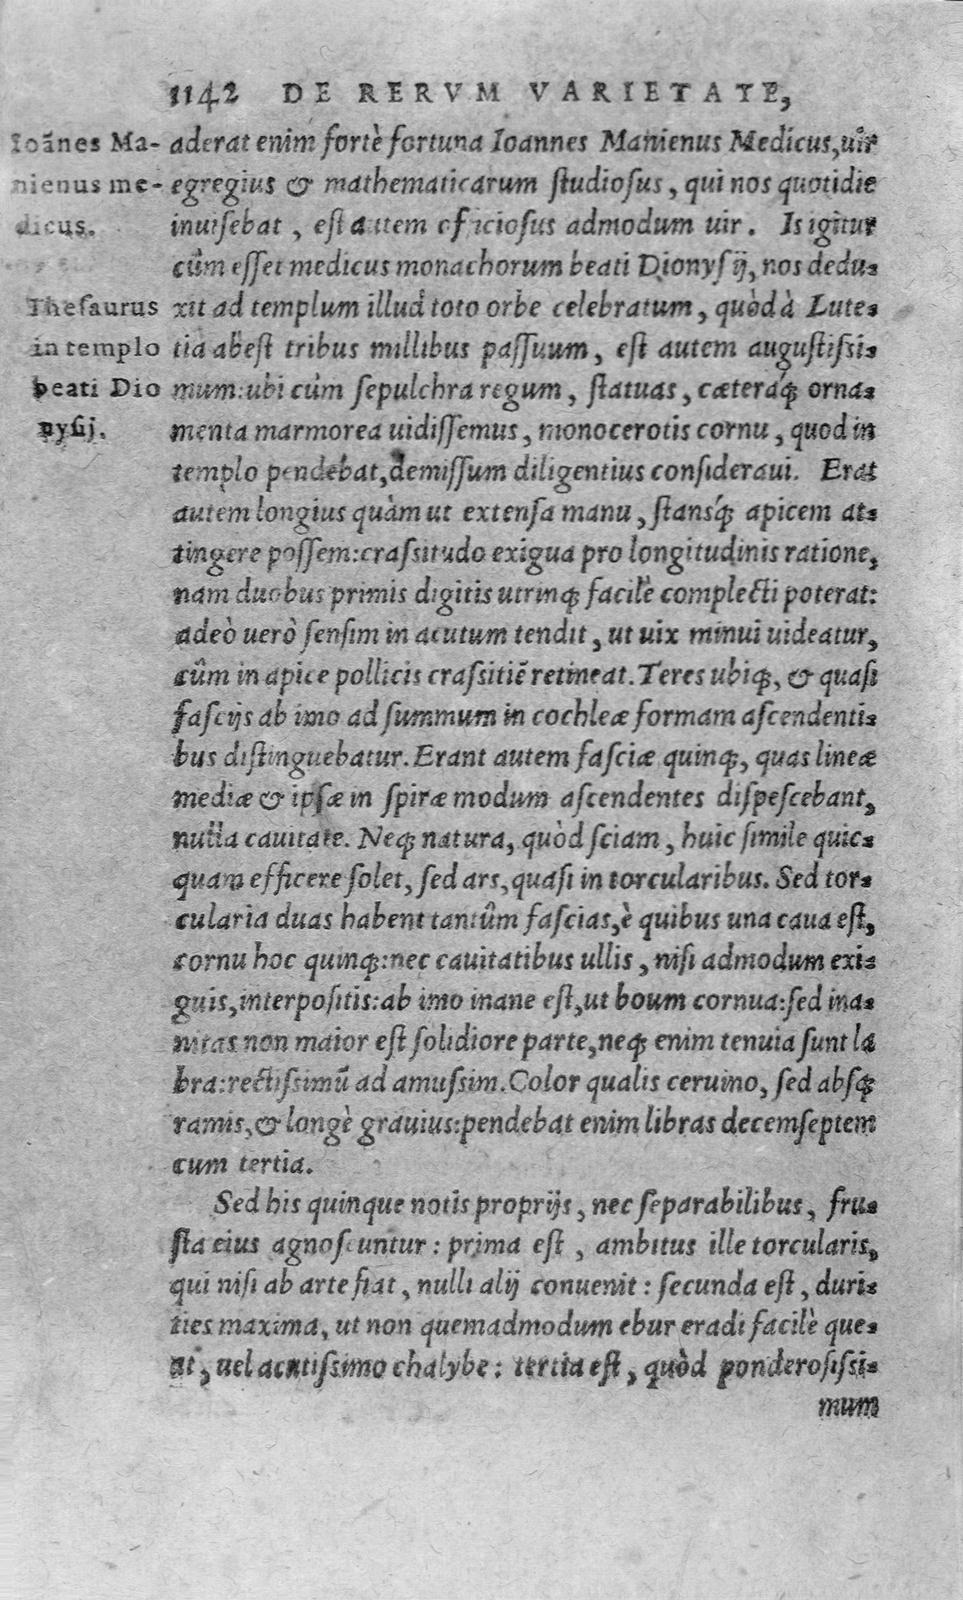 1142 DE RERVM VARIETATE,
Ioãnes Ma-
nienus me-
dicus.
Thesaurus
in templo
beati Dio
nysij.
aderat enim fortè fortuna Ioannes Manienus Medicus, uir
egregius & mathematicarum studiosus, qui nos quotidie
inuisebat, est autem officiosus admodum uir. Is igitur
cûm esset medicus monachorum beati Dionysij, nos dedu-
xit ad templum illud toto orbe celebratum, quòd à Lute-
tia abest tribus millibus passuum, est autem augustissi-
mum: ubi cùm sepulchra regum, statuas, cæteraq́; orna-
menta marmorea uidissemus, monocerotis cornu, quod in
templo pendebat, demissum diligentius consideraui. Erat
autem longius quàm ut extensa manu, stansq́; apicem at-
tingere possem: crassitudo exigua pro longitudinis ratione,
nam duobus primis digitis utrinq; facilè complecti poterat:
adeò uerò sensim in acutum tendit, ut uix minui uideatur,
cûm in apice pollicis crassitiẽ retineat. Teres ubiq;, & quasi
fascijs ab imo ad summum in cochleæ formam ascendenti-
bus distinguebatur. Erant autem fasciæ quinq;, quas lineæ
mediæ & ipsæ in spiræ modum ascendentes dispescebant,
nulla cauitate. Neq; natura, quòd sciam, huic simile quic-
quam efficere solet, sed ars, quasi in torcularibus. Sed tor-
cularia duas habent tantûm fascias, è quibus una caua est,
cornu hoc quinq;: nec cauitatibus ullis, nisi admodum exi-
guis, interpositis: ab imo inane est, ut boum cornua: sed ina-
nitas non maior est solidiore parte, neq; enim tenuia sunt la
bra: rectissimũ ad amussim. Color qualis ceruino, sed absq;
ramis, & longè grauius: pendebat enim libras decemseptem
cum tertia.
Sed his quinque notis proprijs, nec separabilibus, fru-
sta eius agnoscuntur: prima est, ambitus ille torcularis,
qui nisi ab arte fiat, nulli alij conuenit: secunda est, duri-
ties maxima, ut non quemadmodum ebur eradi facilè que-
at, uel acutissimo chalybe: tertia est, quòd ponderosissi-
mum